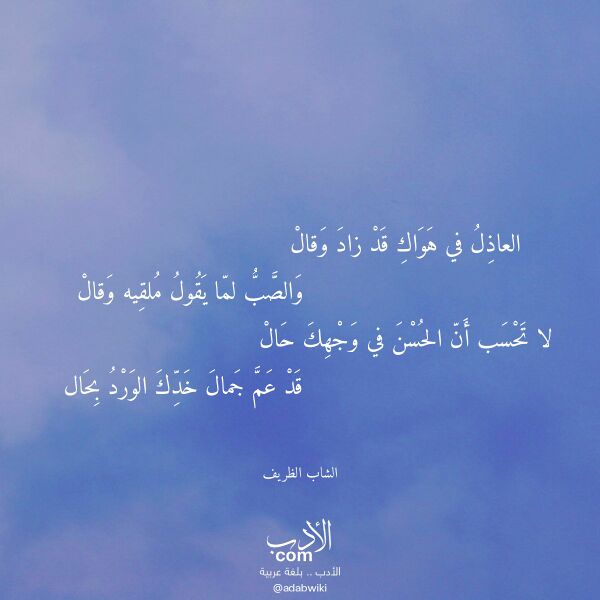 العاذِلُ في هَوَاكِ قَدْ زادَ وَقالْ
وَالصَّبُّ لمّا يَقُولُ مُلقِيه وَقالْ
لا تَحْسَب أَنّ الحُسْنَ في وَجْهِكَ حَالْ
قَدْ عَمَّ جَمالَ خَدِّكَ الوَرْدُ بِحَال
الشاب الظريف
الأدب
com
الأدب .. بلغة عربية
@adabwiki